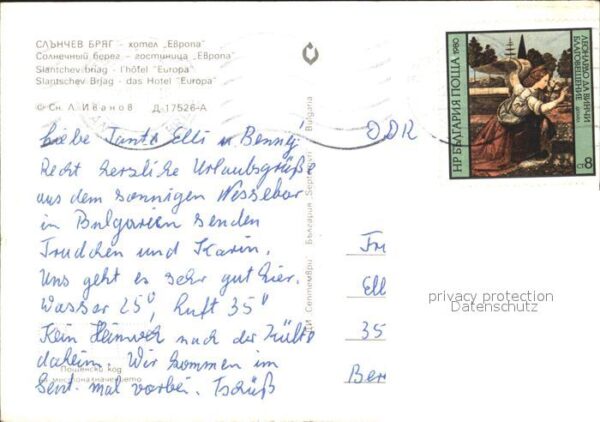 СЛЪНЧЕВ БРЯГ - хотел „Европа"
Солнечный берег - гостиница „Европа"
Slantschev briag - l'hôtel "Europa"
Slantschev Brjag - das Hotel "Europa"
© Сн. Л. Иванов Д-17526-А
Liebe Tante Elli u. Benny!
Recht herzliche Urlaubsgrüße
aus dem sonnigen Nessebar
in Bulgarien senden
Trudchen und Karin.
Uns geht es sehr gut hier.
Wasser 25°, Luft 35°
Kein Heimweh nach der Kälte
daheim. Wir kommen im
Sept. mal vorbei. Tschüß
Пощенски код
на местоназначението
ДИ „Септември" България "Septemvri" Bulgaria
DDR
Fr
Ell
35
Ber
НР БЪЛГАРИЯ ПОЩА 1980
ЛЕОНАРДО ДА ВИНЧИ
БЛАГОВЕЩЕНИЕ
СТ 8
privacy protection
Datenschutz